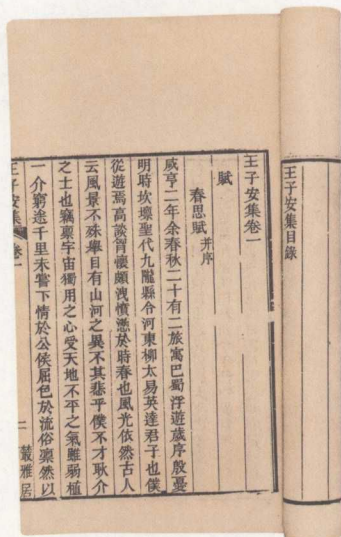 王子安集目錄
王子安集卷一
賦
春思賦 并序
咸亨二年余春秋二十有二旅寓巴蜀浮遊歲序殷憂
明時坎壈聖代九隴縣令河東柳太易英達君子也僕
從遊焉高談胷懷頗洩憤懣於時春也風光依然古人
云風景不殊舉目有山河之異不其悲乎僕不才耿介
之士也竊禀宇宙獨用之心受天地不平之氣雖弱植
一介窮途千里未嘗下情於公侯屈色於流俗凛然以
王子安集 卷一 一 叢雅居